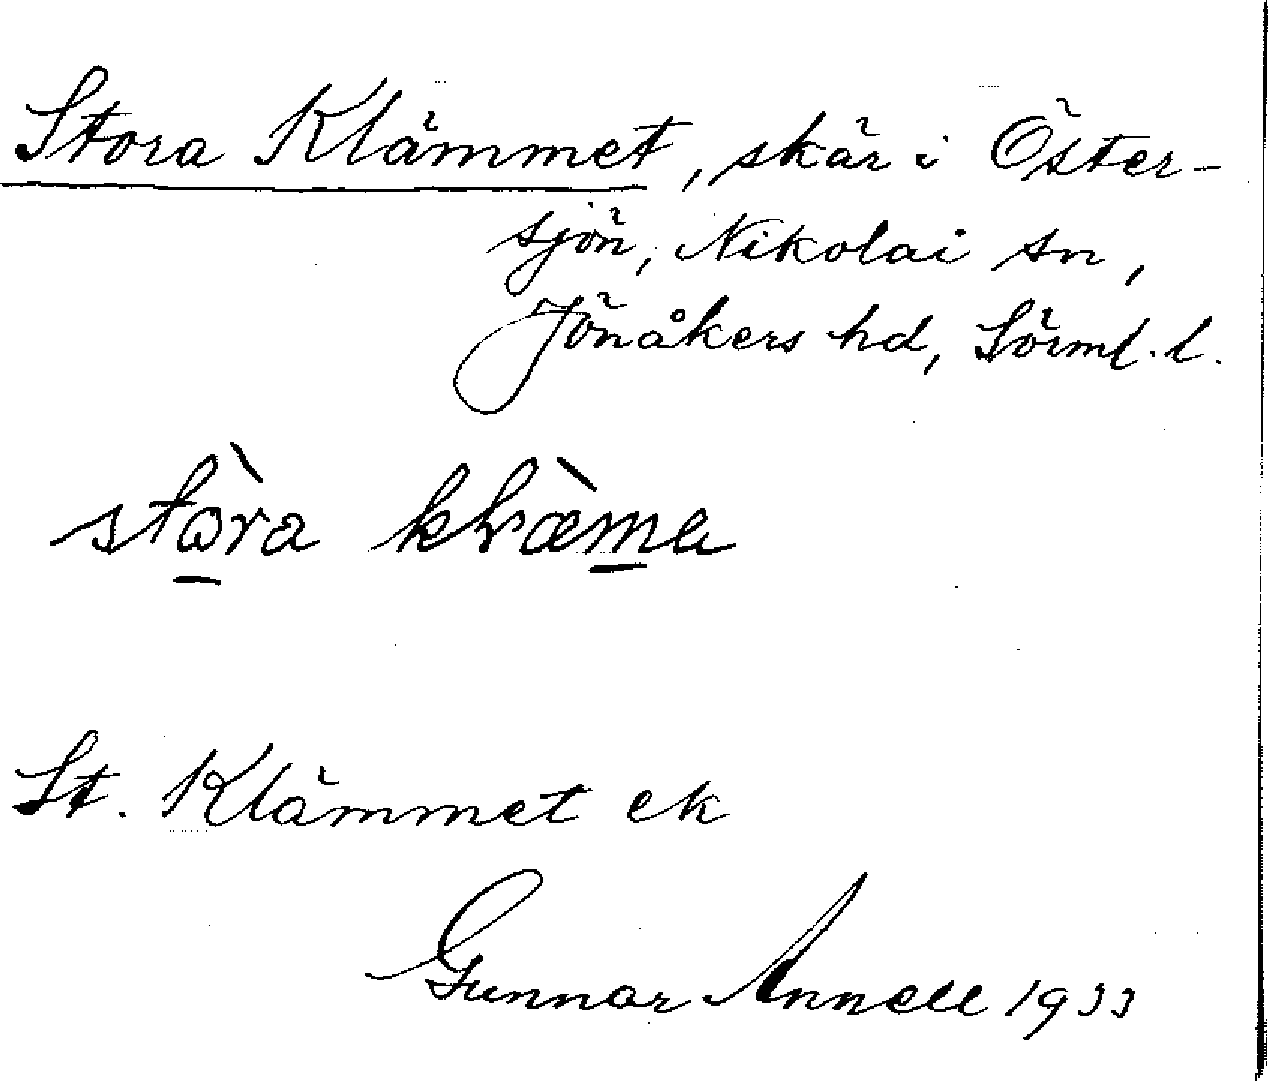 Stora Klämmet, skär i Öster-
sjön, Nikolai sn,
Jönåkers hd, Sörml. l.
stòra
St. Klämmet ek
Gunnar Annell 1933